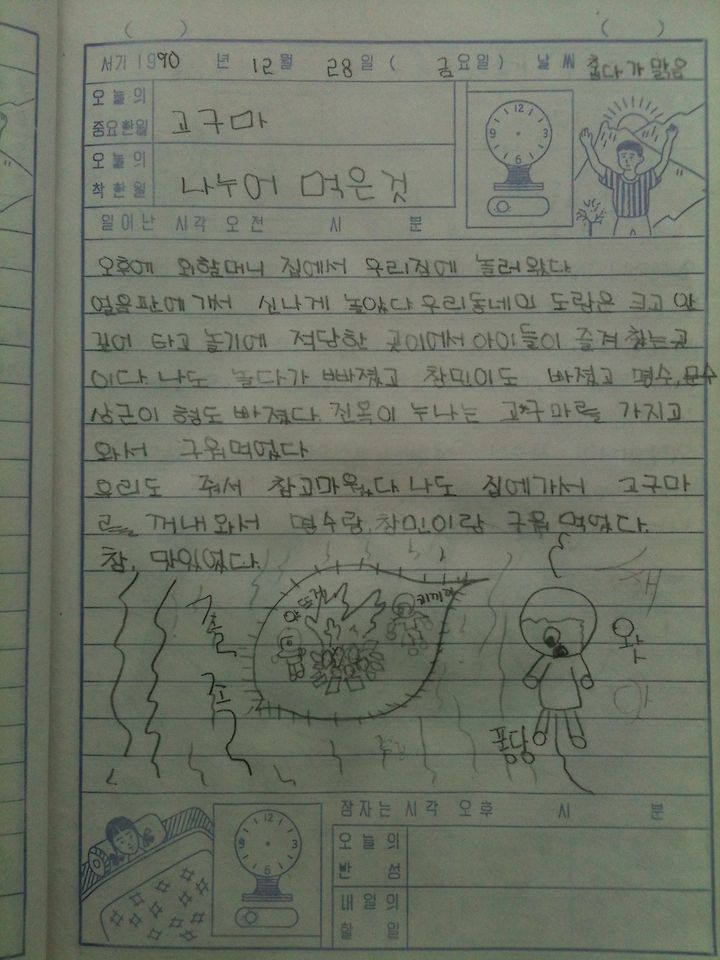 ( ) ( )
서기 1990 년 12월 28일 ( 금요일 ) 날씨 춥다가 맑음
오늘의 중요한일 고구마
오늘의 착한일 나누어 먹은것
12 3 6 9
일어난 시각 오전 시 분
오후에 외할머니 집에서 우리집에 놀러 왔다
얼음판에 가서 신나게 놀았다 우리동네의 도랑은 크고 안
깊어 타고 놀기에 적당한 곳이여서 아이들이 즐겨 찾는곳
이다. 나도 놀다가 빠졌고 창민이도 빠졌고 명수, 문수
상근이 형도 빠졌다. 진목이 누나는 고구마를 가지고
와서 구워먹었다
우리도 줘서 참고마웠다 나도 집에가서 고구마
를 꺼내 와서 명수랑, 창민이랑 구워 먹었다.
참, 맛있었다.
앗 뜨거
와
퐁당
잠자는 시각 오후 시 분
12 3 6 9
오늘의 반성
내일의 할일